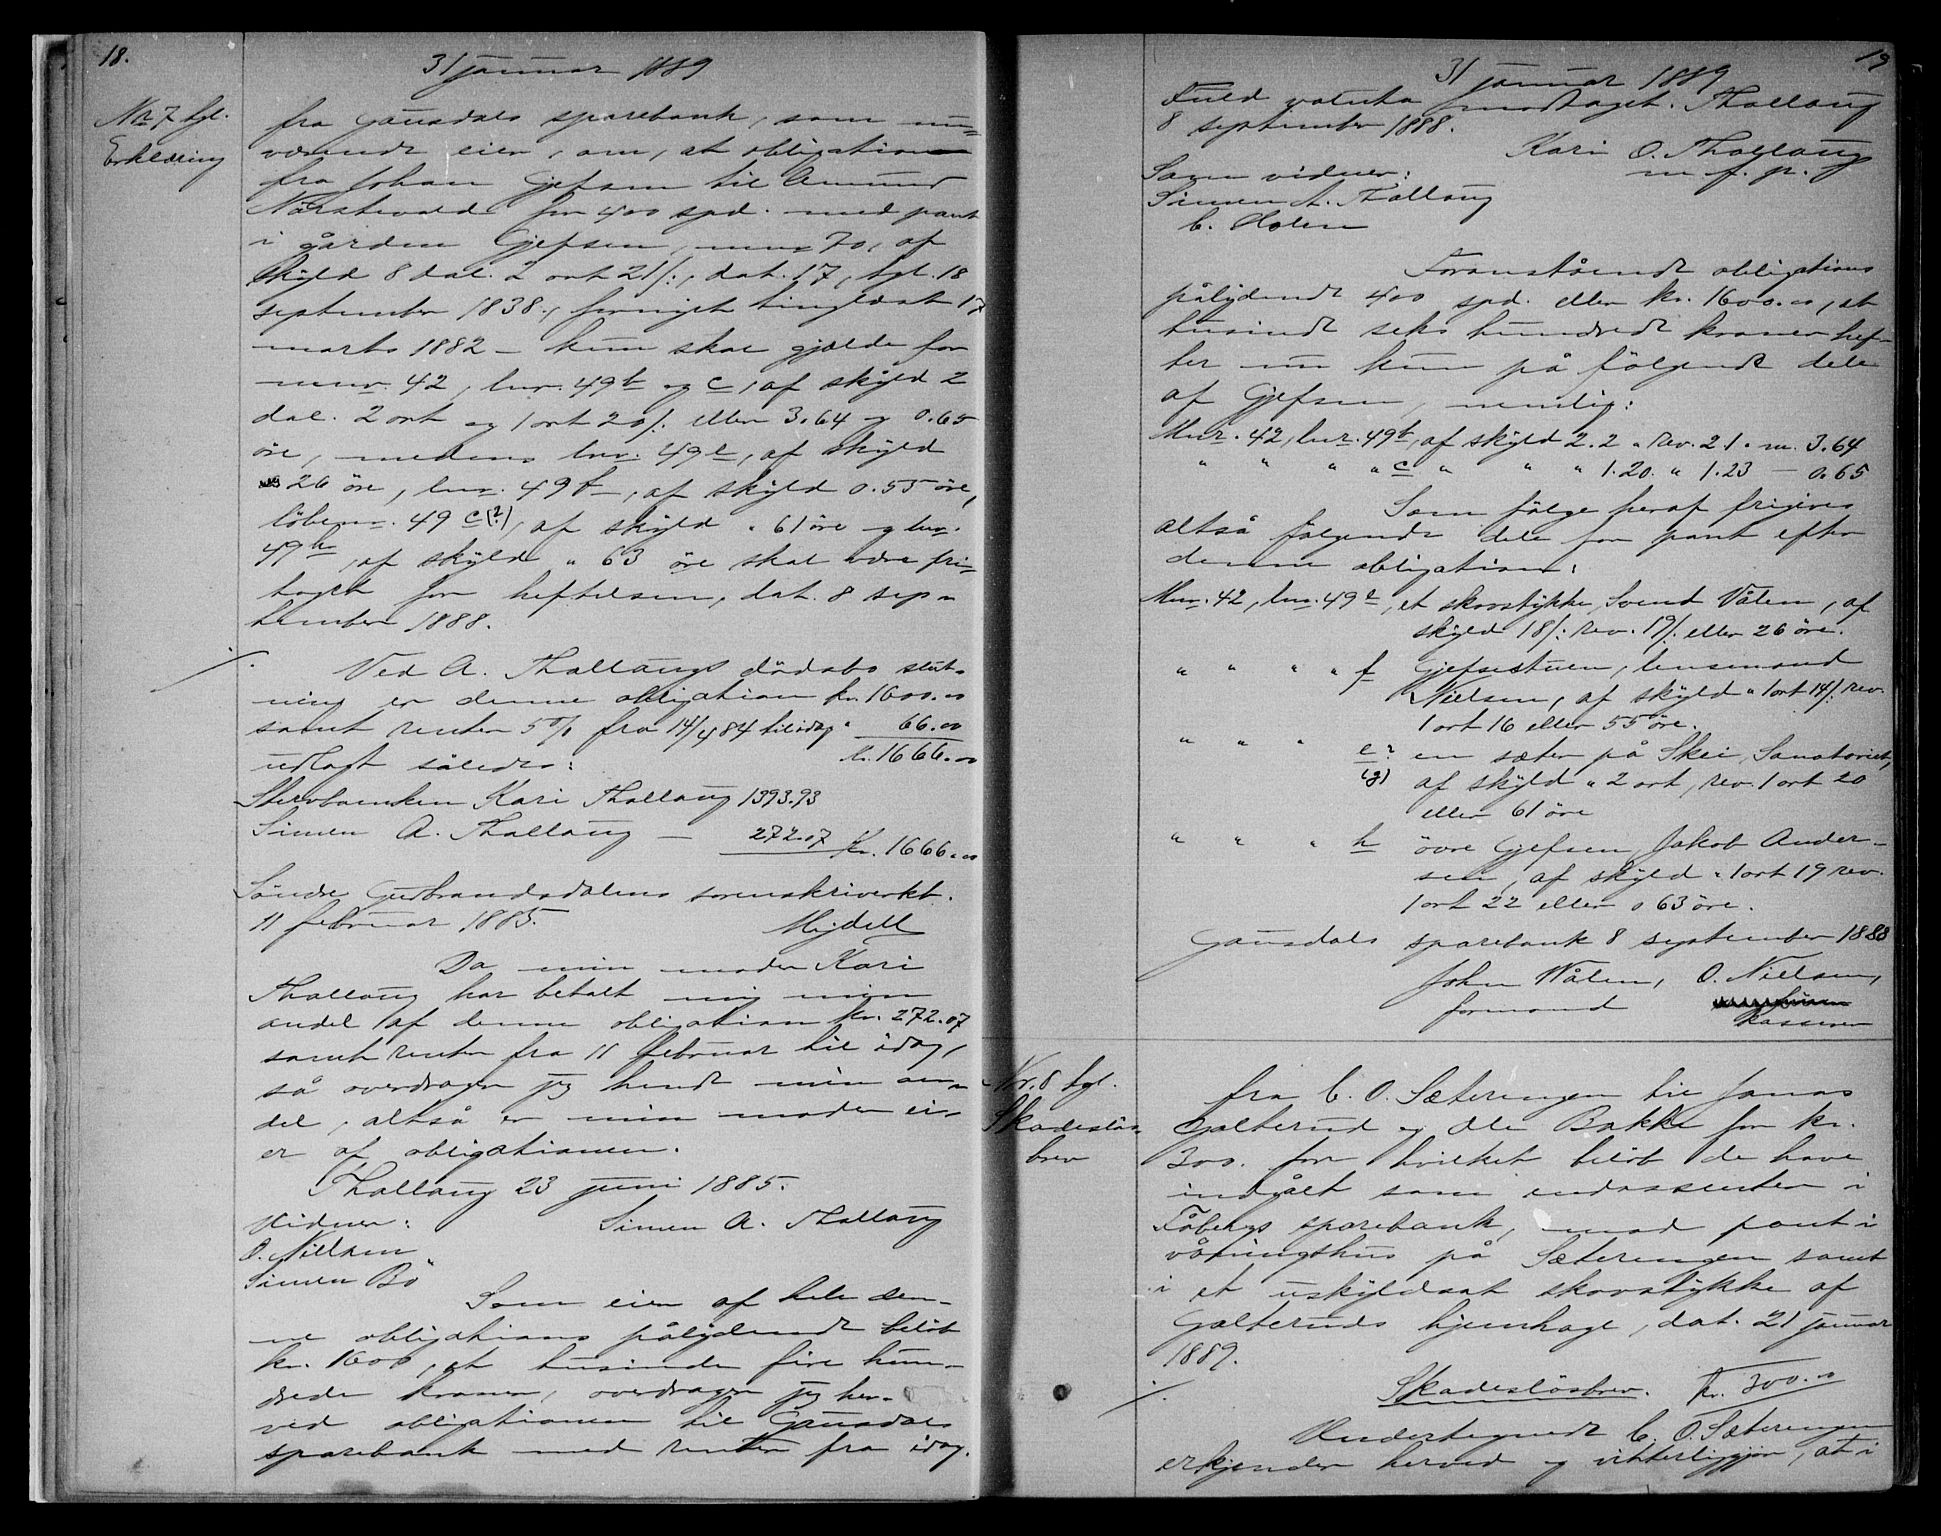 18.
31 januar 1889
Nr 7 tgl.
Erklæring
fra Gausdals sparebank, som nu-
værende eier, om, at obligation
fra Johan Gjefsen til Amund
Nørstevold for 400 spd. med pant
i gården Gjefsen, mno 70, af
skyld 8 dal. 2 ort 21 /:, dat. 17, tgl. 18
september 1838, fornyet tinglæst 17
marts 1882 - kun skal gjælde for
mnr. 42, lnr. 49b og c, af skyld 2
dal. 2 ort og 1 ort 20 /: eller 3.64 og 0.65
øre, medens lnr. 49e, af skyld
26 øre, lnr. 49f, af skyld 0.55 øre,
löbenr. 49 e(?), af skyld " 61 øre og lnr.
49h, af skyld " 63 øre skal være fri-
taget for heftelsen, dat. 8 sep-
tember 1888.
./.
Ved A. Thallaugs dödsbo slut-
ning er denne obligation kr. 1600.00
samt renter 5% fra 14/4 84 til idag " 66.00
udlagt således: kr. 1666.00
Stervboenken Kari Thallaug 1393.93
Simen A. Thallaug — 272.07 Kr. 1666.00
Söndre Gudbrandsdalens sorenskriverkt.
11 februar 1885. Mejdell
Da min moder Kari
Thallaug har betalt mig min
andel af denne obligation kr. 272.07
samt renter fra 11 februar til idag,
så overdrager jeg hende min an-
del, altså er min moder ei-
er af obligationen.
Thallaug 23 juni 1885.
Vidner: Simen A. Thallaug
O. Nielsen
Simen Bö
Som eier af hele den-
ne obligations pålydende belöb
kr. 1600, et tusinde fire hun-
drede kroner, overdrager jeg her-
ved obligationen til Gausdals
sparebank med renter fra idag.
19
31 januar 1889
Fuld valuta modtaget. Thallaug
8 september 1888.
Kari O. Thallaug
m. f. p.
Som vidner:
Simen A. Thallaug
C. Holen
Foranstående obligations
pålydende 400 spd. eller kr. 1600.00, et
tusinde seks hundrede kroner hef-
ter nu kun på fölgende dele
af Gjefsen, nemlig:
Mnr. 42, lnr. 49b, af skyld 2.2 " rev. 2.1 " m. 3.64
" " " " c " " " 1.20. " 1.23 — 0.65
Som fölge heraf frigives
altså fölgende dele for pant efter
denne obligation:
Mnr. 42, lnr. 49e, et skovstykke, Svend Vålen, af
skyld 18 /: rev. 19 /: eller 26 øre.
" " " " f Gjefsestuen, lensmand
Nielsen, af skyld " 1 ort 14 /: rev.
1 ort 16 eller 55 øre.
" " " e? en sæter på Skei, Sanatoriet,
(g) af skyld " 2 ort, rev. 1 ort 20
eller 61 øre
" " " h övre Gjefsen, Jakob Ander-
sen, af skyld " 1 ort 19 rev.
1 ort 22 eller 0 63 øre.
Gausdals sparebank 8 september 1888
John Wålen, O. Nielsen,
formand
kasserer
Nr. 8 tgl.
Skadeslös-
brev
fra C. O. Sæteringen til Jonas
Galterud og Ole Bakke for kr.
300. for hvilket belöb de have
indgået som endossenter i
Fåbergs sparebank, mod pant i
våningshus på Sæteringen samt
i et uskyldsat skovstykke af
Galteruds hjemhage, dat. 21 januar
1889.
./.
Skadeslösbrev. Kr. 300.00
Undertegnede C. O. Sæteringen
erkjender herved og vitterliggjør, at i